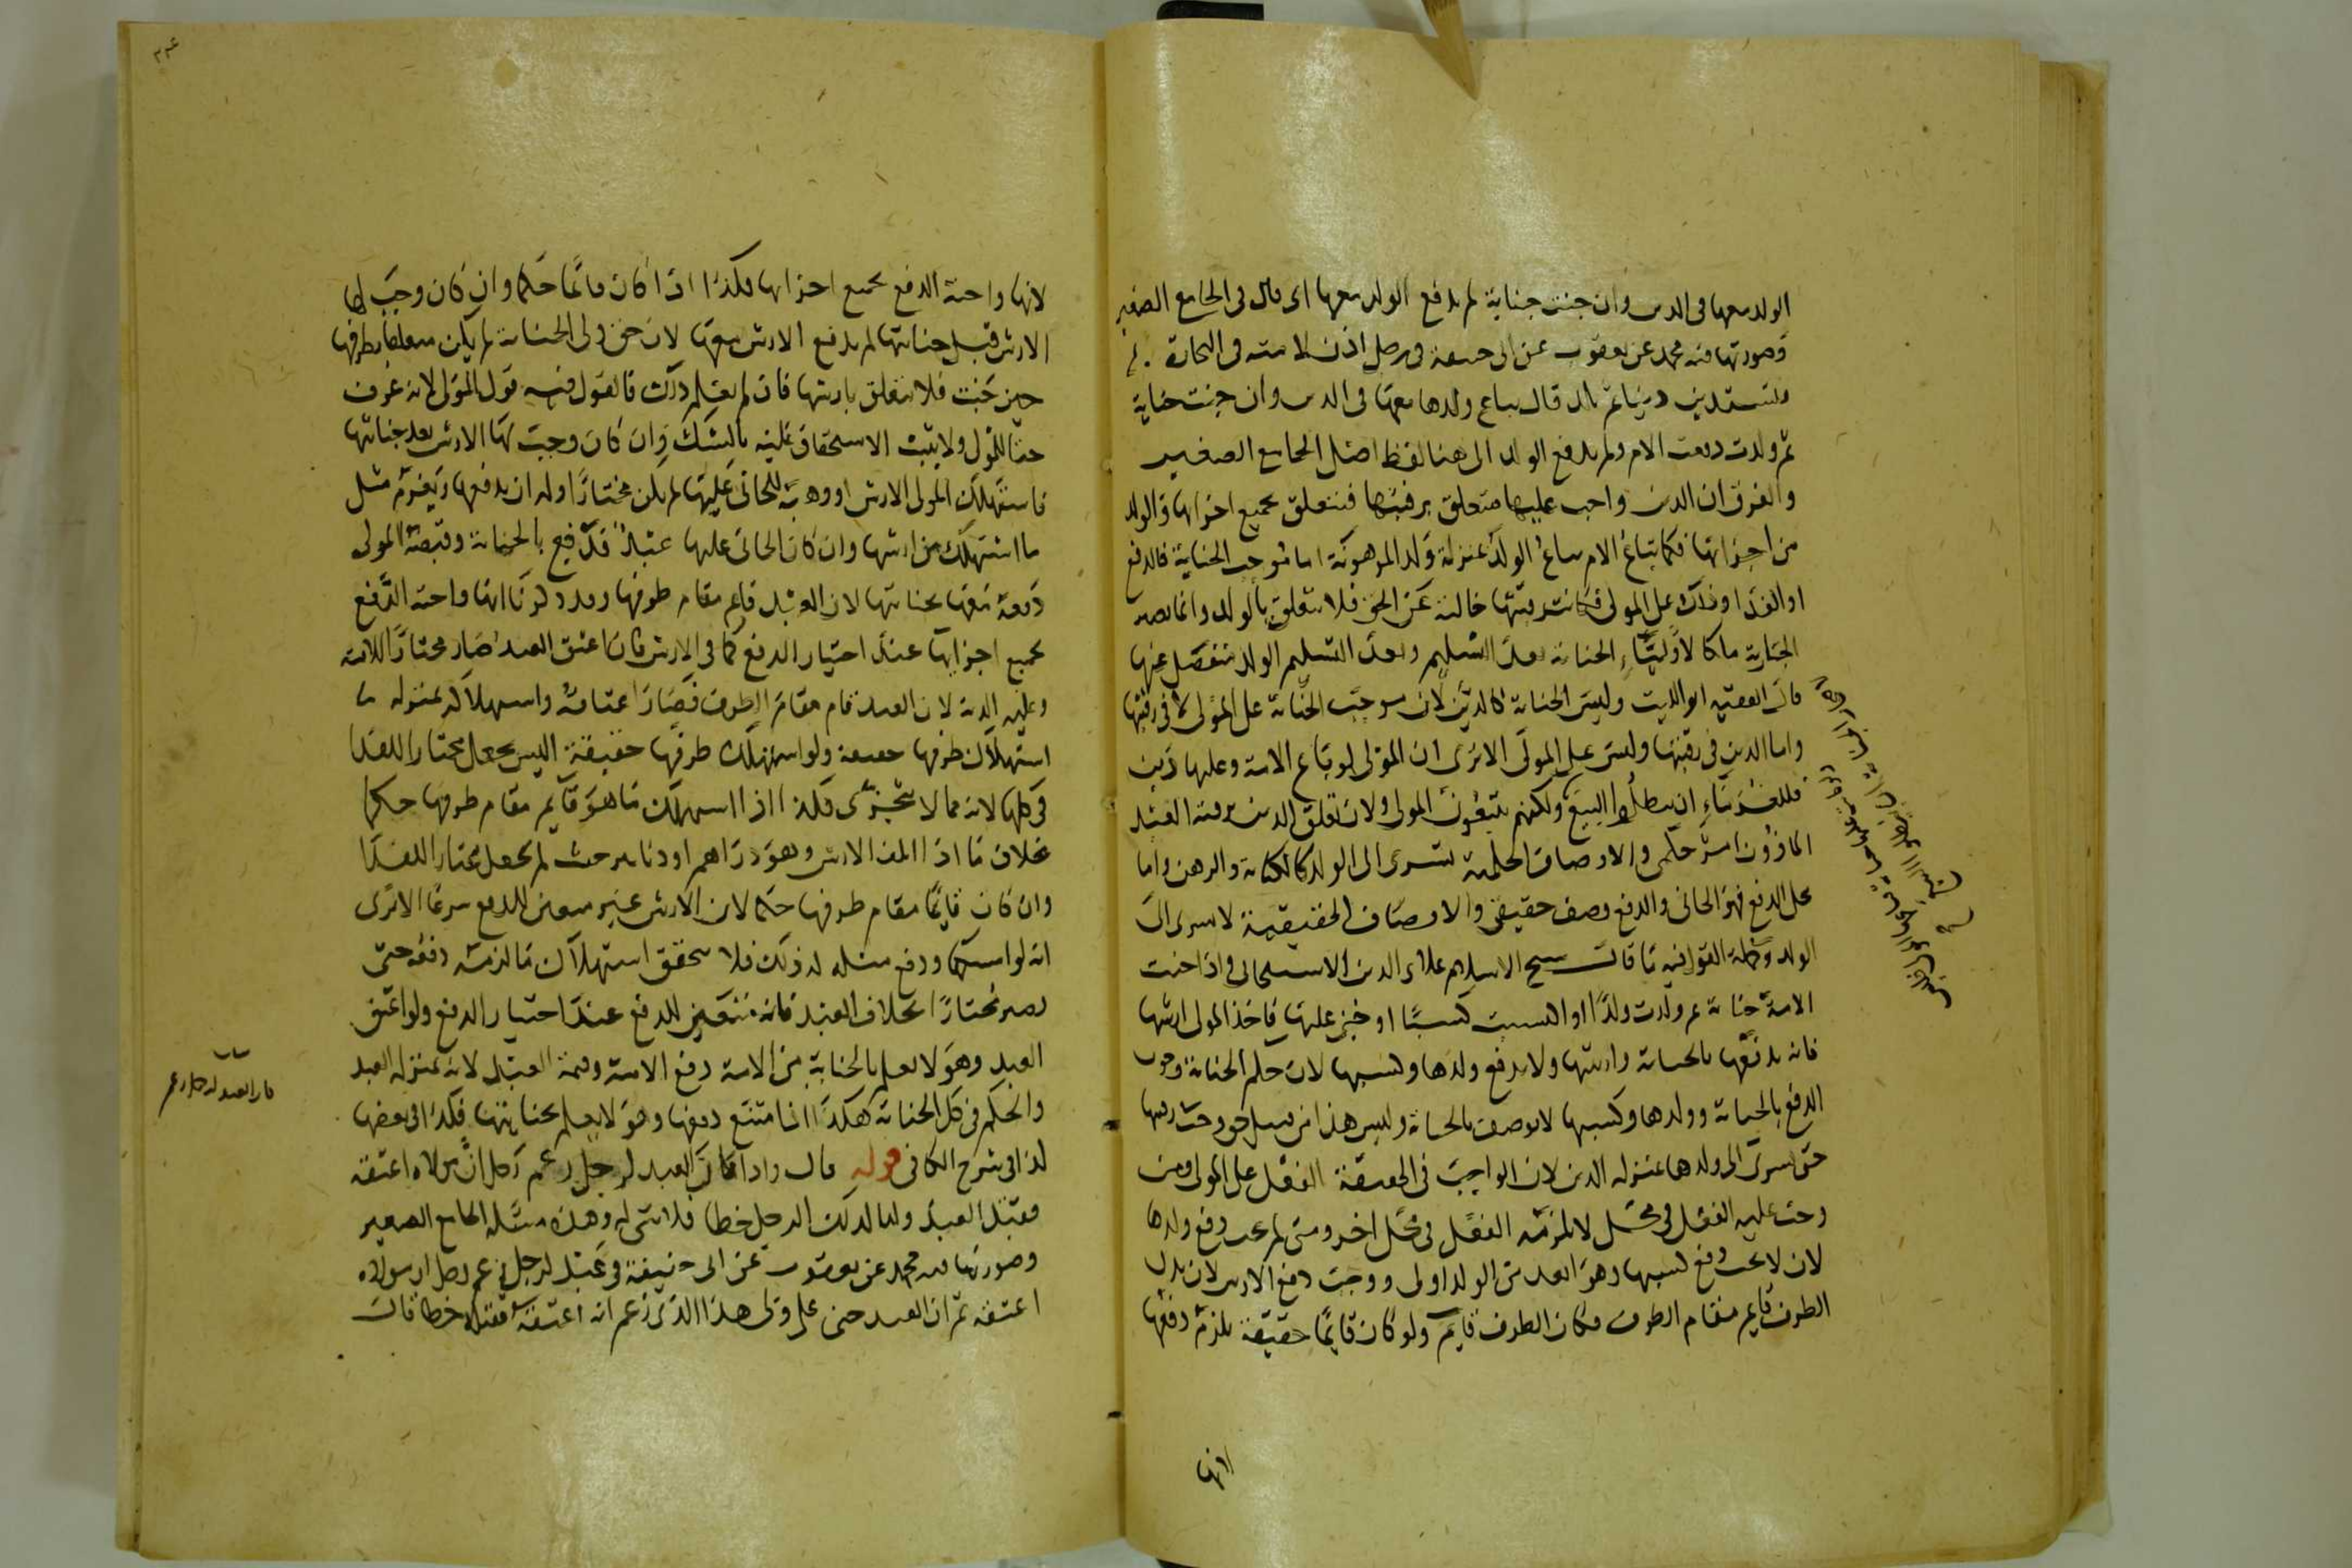 الولد معها فى الدين وان جنت جناية لم يدفع الولد معها اى قال فى الجامع الصغير
وصورتها فيه محمد عن يعقوب عن ابى حنيفة فى رجل اذن لامته فى التجارة
فتستدين دينا ثم تلد قال يباع ولدها معها فى الدين وان جنت جناية
ثم ولدت دفعت الام ولم يدفع الولد الى هنا لفظ اصل الجامع الصغير
والفرق ان الدين واجب عليها متعلق برقبتها فيتعلق بجميع اجزائها والولد
من اجزائها فكما تباع الام يباع الولد بمنزلة ولد المرهونة اما موجب الجناية فالدفع
او الفدا وذلك على المولى فكانت رقبتها خالية عن الحق فلا يتعلق بالولد وانما يصير
الجارية ملكا لاولياء الجناية بعد التسليم وبعد التسليم الولد منفصل عنها
قال الفقيه ابو الليث وليس الجناية كالدين لان موجب الجناية على المولى لا فى رقبتها
واما الدين فى رقبتها وليس على المولى الا ترى ان المولى لو باع الامة وعليها دين
فللغرماء ان يبطلوا البيع ولكنهم يتبعون المولى ولان تعلق الدين برقبة العبد
الماذون امر حكمى والاوصاف الحكمية تسرى الى الولد كالكتابة والرهن واما
محل الدفع فهو الجانى والدفع وصف حقيقى والاوصاف الحقيقية لا تسرى الى
الولد وجملة القول فيه ما قال شيخ الاسلام علاء الدين الاسبيجابى واذا جنت
الامة جناية ثم ولدت ولدا او اكتسبت كسبا او جنى عليها فاخذ المولى ارشها
فانه يدفعها بالجناية وارشها ولا يدفع ولدها وكسبها لان حكم الجناية وجوب
الدفع بالجناية وولدها وكسبها لا يوصف بالجناية وليس هذا من قبيل حق وجب فيها
حتى يسرى الى ولدها بمنزلة الدين لان الواجب فى الحقيقة الفعل على المولى ومن
وجب عليه الفعل فى محل لا يلزمه الفعل فى محل اخر ومتى لم يجب دفع ولدها
لان لا يجب دفع كسبها وهو ابعد من الولد اولى ووجب دفع الارش لان بدل
الطرف قايم مقام الطرف فكان الطرف قايم ولو كان قايما حقيقة يلزمه دفعها
لانها
لانها واجبة الدفع بجميع اجزائها فكذا اذا كان قائما حكما وان كان وجب لها
الارش قبل جنايتها لم يدفع الارش معها لان حق ولى الجناية لم يكن متعلقا بطرفها
حين جنت فلا يتعلق بارشها فان لم يعلم ذلك فالقول فيه قول المولى لانه عرف
حقا للمولى ولا يثبت الاستحقاق عليه بالشك وان كان وجب لها الارش بعد جنايتها
فاستهلك المولى الارش او وهبه للجانى عليها لم يكن مختارا وله ان يدفعها ويغرم مثل
ما استهلك من ارشها وان كان الجانى عليها عبدا فدفع بالجناية وقبضه المولى
دفعه معها بجنايتها لان العبد قايم مقام طرفها وقد ذكرنا انها واجبة الدفع
بجميع اجزائها عند اختيار الدفع كما فى الارش فان اعتق العبد صار مختارا للامة
وعليه الدية لان العبد قام مقام الطرف فصار اعتاقه واستهلاكه بمنزلة
استهلاك طرفها حقيقة ولو استهلك طرفها حقيقة اليس يجعل مختارا للفدا
فى كلها لانه مما لا يتجزى فكذا اذا استهلك ما هو قايم مقام طرفها حكما
بخلاف ما اذا اتلف الارش وهو دراهم او دنانير حيث لم يجعل مختارا للفدا
وان كان قايما مقام طرفها حكما لان الارش غير متعين للدفع شرعا الا ترى
انه لو امسكها ودفع مثله له ذلك فلا يتحقق استهلاك ما لزمه دفعه حتى
يصير مختارا بخلاف العبد فانه متعين للدفع عند اختيار الدفع ولو اعتق
العبد وهو لا يعلم بالجناية من الامة دفع الامة وقيمة العبد لانه بمنزلة العبد
والحكم فى كل الجناية هكذا اذا امتنع دفعها وهو لا يعلم بجنايتها فكذا فى بعضها
كذا فى شرح الكافى قوله قال واذا كان العبد لرجل زعم رجل ان مولاه اعتقه
فقتل العبد وليا لذلك الرجل خطا فلا شى له وهذه مسئلة الجامع الصغير
وصورتها فيه محمد عن يعقوب عن ابى حنيفة فى عبد لرجل زعم رجل ان مولاه
اعتقه ثم ان العبد جنى على ولى هذا الذى زعم انه اعتقه فقتله خطا قال